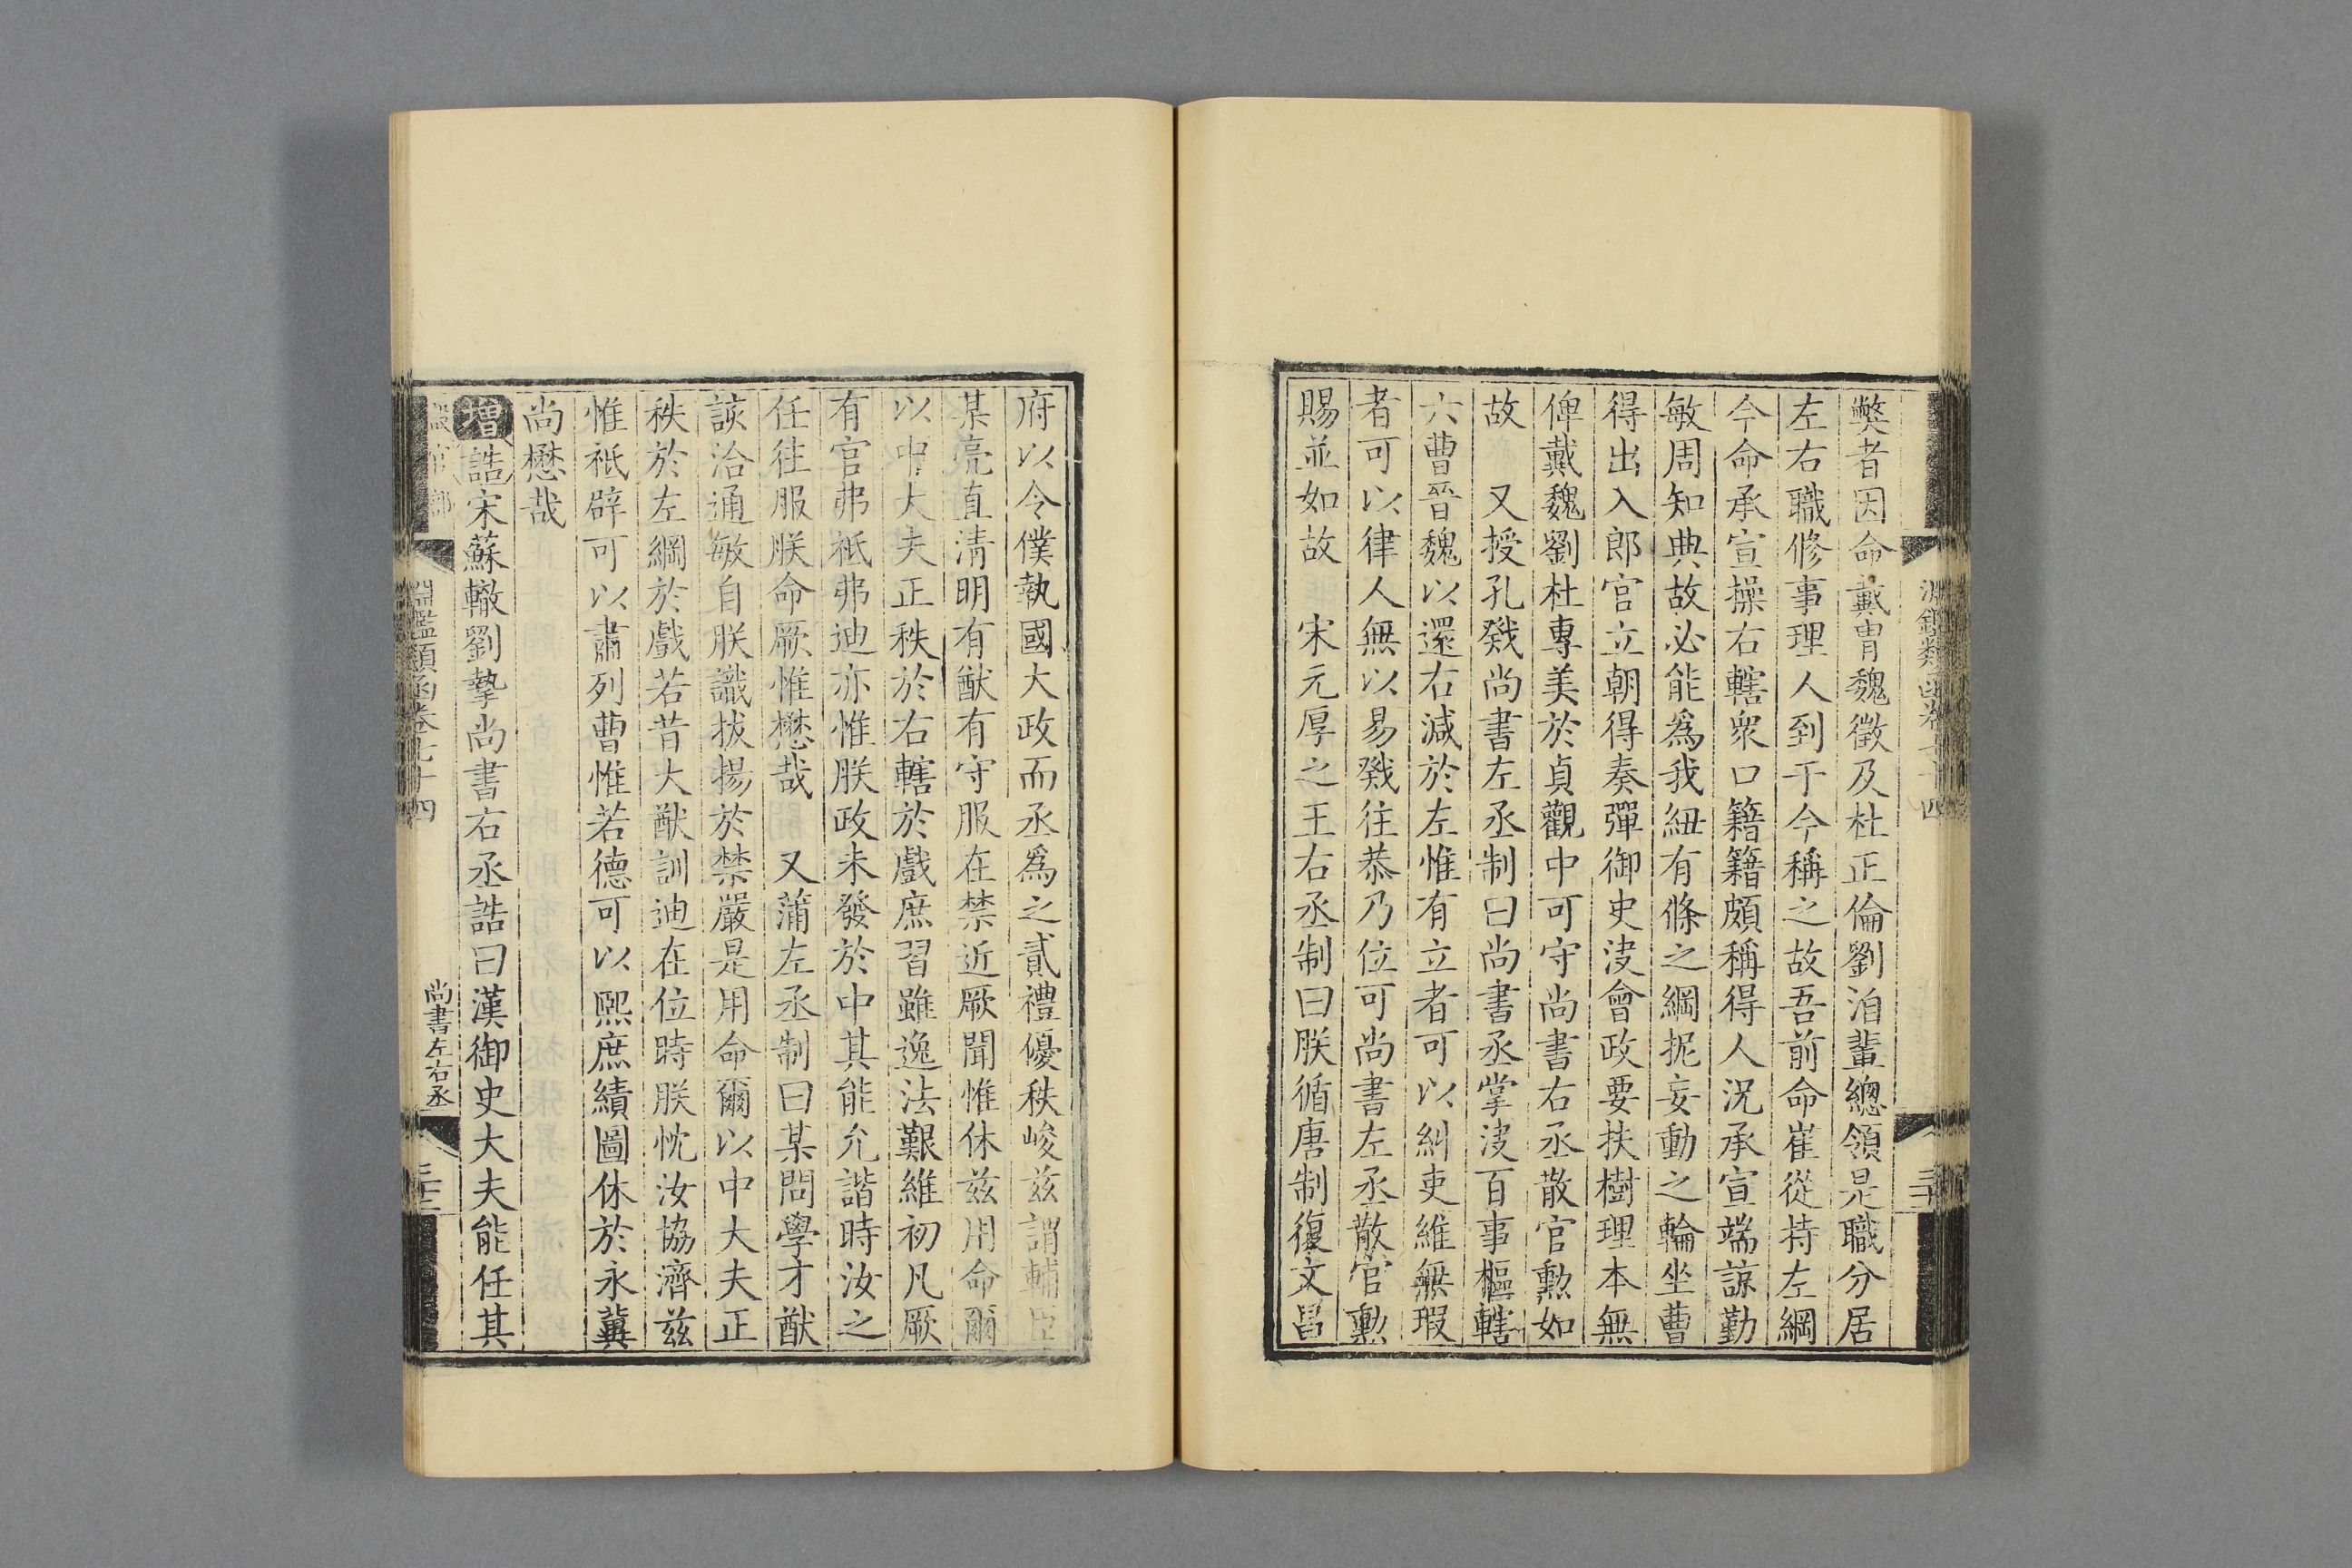 弊者因命戴胄魏徵及杜正倫劉洎輩總領是職分居
左右職修事理人到于今稱之故吾前命崔從持左綱
今命承宣操右轄衆口籍籍頗稱得人況承宣端諒勤
敏周知典故必能爲我紐有條之綱抳妄動之輪坐曹
得出入郎官立朝得奏彈御史決會政要扶樹理本無
俾戴魏劉杜專美於貞觀中可守尚書右丞散官勲如
故　又授孔戣尚書左丞制曰尚書丞掌決百事樞轄
六曹晉魏以還右減於左惟有立者可以糾吏維無瑕
者可以律人無以易戣往恭乃位可尚書左丞散官勲
賜並如故　宋元厚之王右丞制曰朕循唐制復文昌
府以令僕執國大政而丞爲之貳禮優秩峻兹謂輔臣
某亮直清明有猷有守服在禁近厥聞惟休兹用命爾
以中大夫正秩於右轄於戲庶習雖逸法艱維初凡厥
有官弗祗弗迪亦惟朕政未發於中其能允諧時汝之
任往服朕命厥惟懋哉　又蒲左丞制曰某問學才猷
該洽通敏自朕識拔揚於禁嚴是用命爾以中大夫正
秩於左綱於戲若昔大猷訓迪在位時朕忱汝協濟兹
惟祗辟可以肅列曹惟若德可以熙庶績圖休於永冀
尚懋哉
增誥宋蘇轍劉摯尚書右丞誥曰漢御史大夫能任其
淵鑑類函卷七十四
尚書左右丞